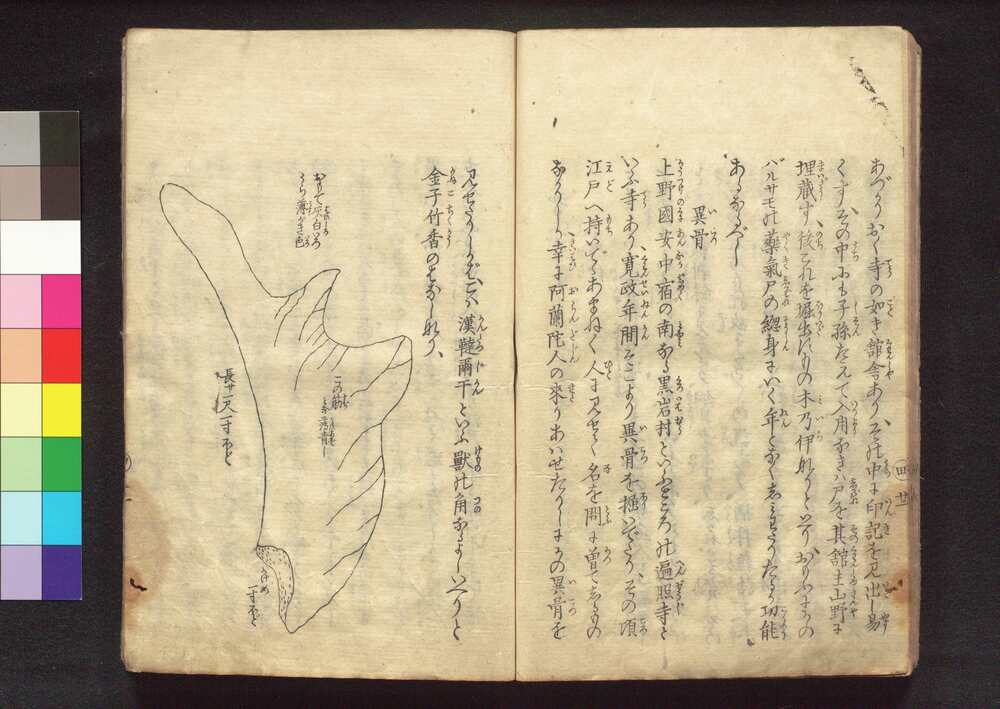 寺の如き館舎あり、その中に印記を見出し易
くす、その中にも子孫たえて入用なき尸を其館主山野に
埋蔵す、後これを堀出せしもの木乃伊なりといへり
バルサモの藥氣尸の總身にいく年となくしみわたりたる功能
あるなるべし
異骨
上野國安中宿の南なる黒岩村といふところの遍照寺と
いふ寺あり寛政年間そこより異骨を掘いでたり、その頃
江戸へ持いであまねく人に見せて名を問に曽てしるもの
なかりし幸に阿蘭陀人の來りあはせたりしにかの異骨を
見せたりしかば、こハ漢韃爾干といふ獸の角なるよしいへりと
金子竹香のはなしなり、
おもて灰白いろ
うら薄がき色
この筋
みな薄青し
長サ一尺一寸ほど
一寸ほど
四 廿